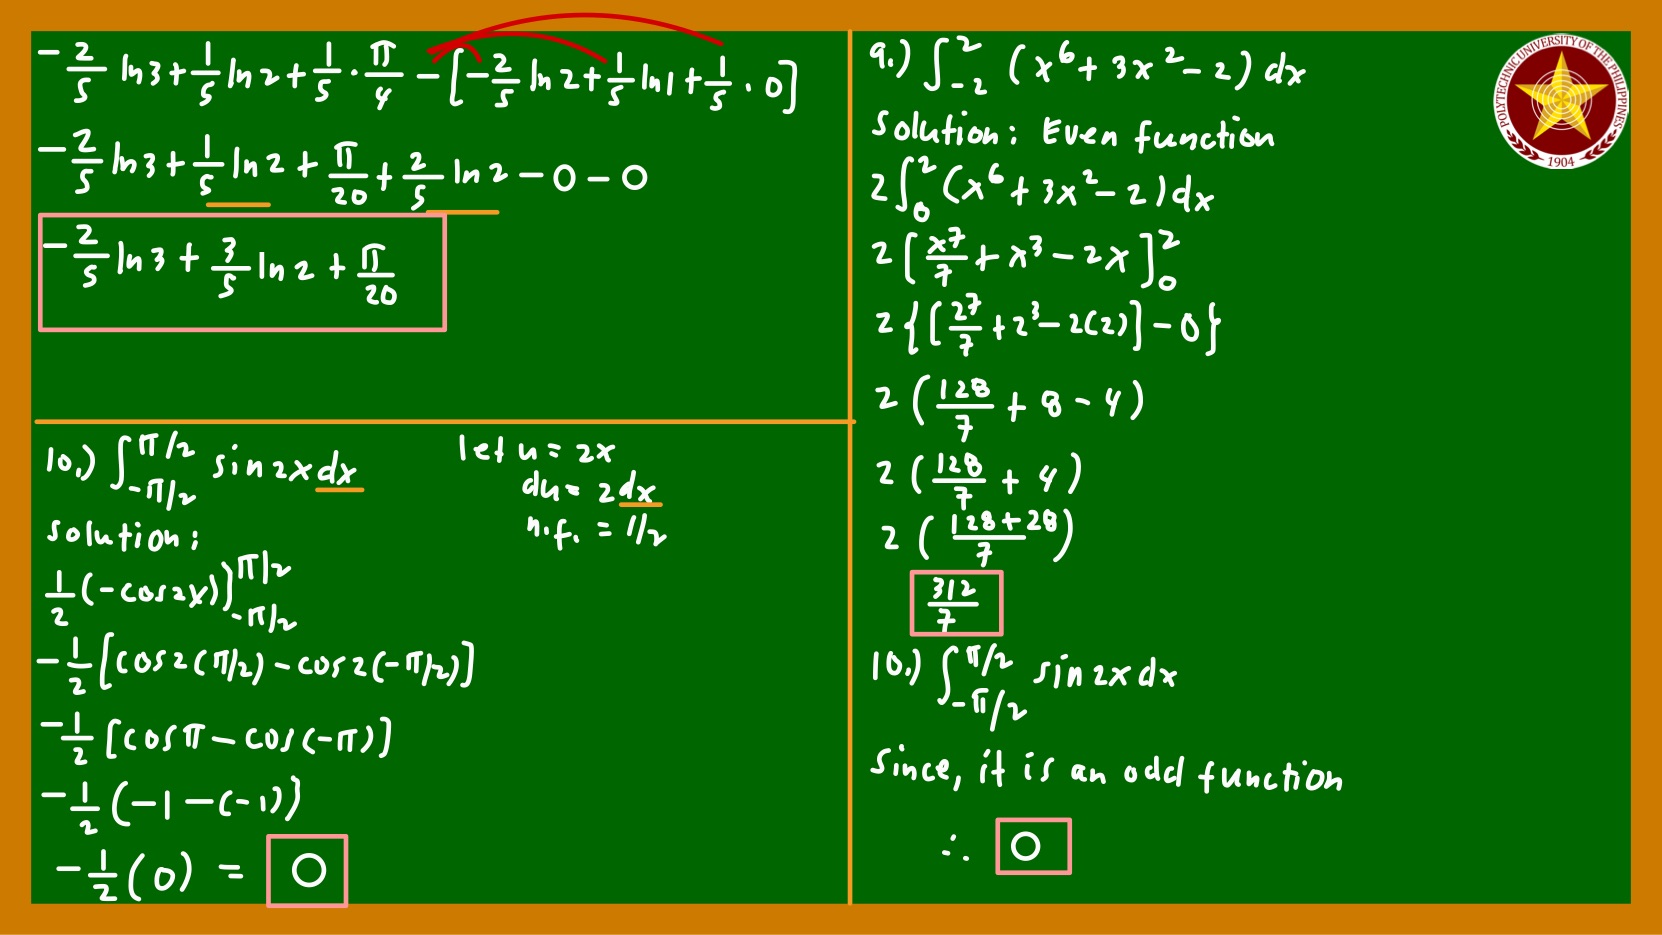 -2/5 ln3 + 1/5 ln2 + 1/5 · π/4 - [-2/5 ln2 + 1/5 ln1 + 1/5 · 0]
-2/5 ln3 + 1/5 ln2 + π/20 + 2/5 ln2 - 0 - 0
-2/5 ln3 + 3/5 ln2 + π/20
10.) ∫_{-π/2}^{π/2} sin2x dx
let u = 2x
du = 2dx
n.f. = 1/2
solution:
1/2 (-cos2x)]_{-π/2}^{π/2}
-1/2 [cos2(π/2) - cos2(-π/2)]
-1/2 [cosπ - cos(-π)]
-1/2 (-1 - (-1))
-1/2 (0) = 0
9.) ∫_{-2}^{2} (x^6 + 3x^2 - 2) dx
Solution: Even function
2 ∫_0^2 (x^6 + 3x^2 - 2) dx
2 [x^7/7 + x^3 - 2x]_0^2
2 {[2^7/7 + 2^3 - 2(2)] - 0}
2 (128/7 + 8 - 4)
2 (128/7 + 4)
2 (128+28/7)
312/7
10.) ∫_{-π/2}^{π/2} sin2x dx
Since, it is an odd function
∴ 0
POLYTECHNIC UNIVERSITY OF THE PHILIPPINES
1904